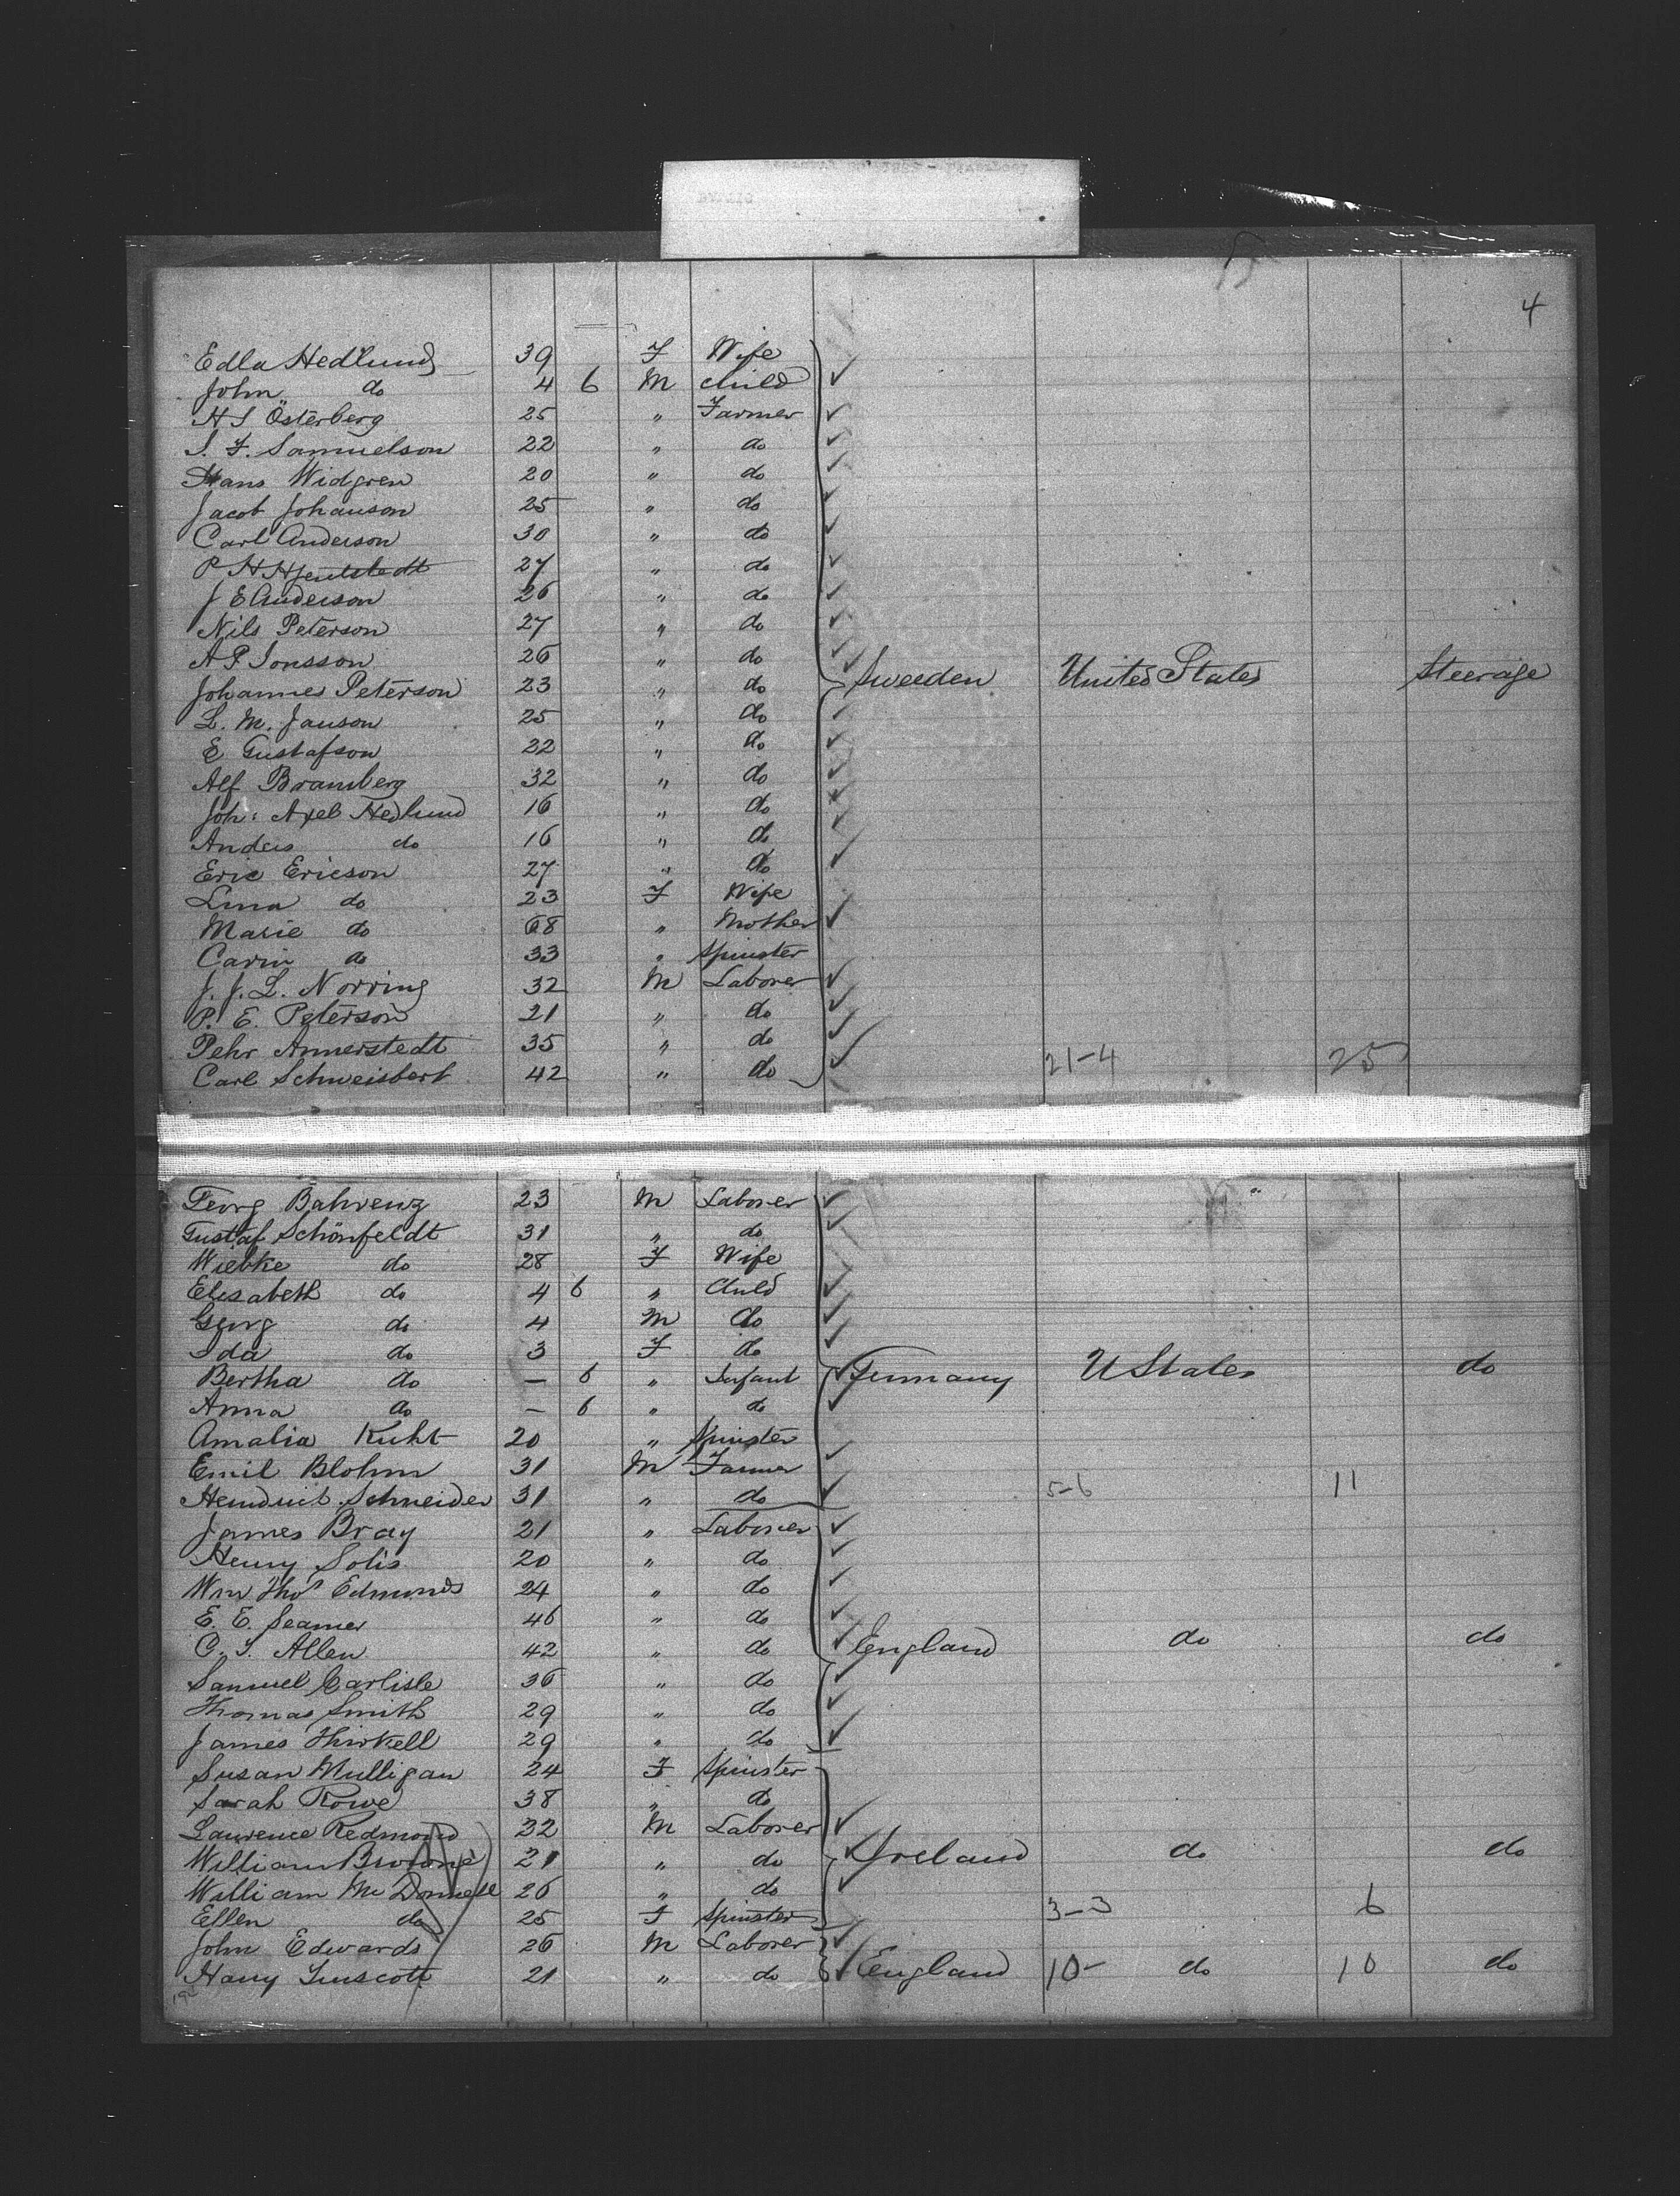 4
Edla Hedlund 39 F Wife
John do 4 6 M child
H S Österberg 25 " Farmer
S. F. Samuelson 22 " do
Hans Widgren 20 " do
Jacob Johanson 25 " do
Carl Anderson 30 " do
P H 27 " do
J E Anderson 26 " do
Nils Peterson 27 " do
A P Jonsson 26 " do
Johannes Peterson 23 " do Sweeden United States Steerage
L. M. Janson 25 " do
E Gustafson 22 " do
Alf Bramberg 32 " do
Joh: Axel Hedlund 16 " do
Anders do 16 " do
Eric Ericson 27 " do
Lina do 23 F Wife
Marie do 68 " Mother
Carin do 33 " Spinster
J. J. L. Norring 32 M Laborer
P. E. Peterson 21 " do
Pehr Annerstedt 35 " do
Carl Schweisbert 42 " do 21-4 25
Georg Bahrenz 23 M Laborer
Gustaf Schönfeldt 31 " do
Wiebke do 28 F Wife
Elisabeth do 4 6 " Child
Georg do 4 M do
Ida do 3 F do
Bertha do — 6 " Infant Germany U States do
Anna do — 6 " do
Amalia Kuht 20 " Spinster
Emil Blohm 31 M Farmer
Schneider 31 " do 5-6 11
James Bray 21 " Laborer
Henry Solis 20 " do
Wm Thos Edmunds 24 " do
E. E. Seamer 46 " do
C. S. Allen 42 " do England do do
Samuel Carlisle 36 " do
Thomas Smith 29 " do
James Thirkell 29 " do
Susan Mulligan 24 F Spinster
Sarah Rowe 38 " do
Laurence Redmond 32 M Laborer
William Browne 21 " do Ireland do do
William McDonnell 26 " do
Ellen do 25 F Spinster 3-3 6
John Edwards 26 M Laborer
Harry 21 " do England 10- do 10 do